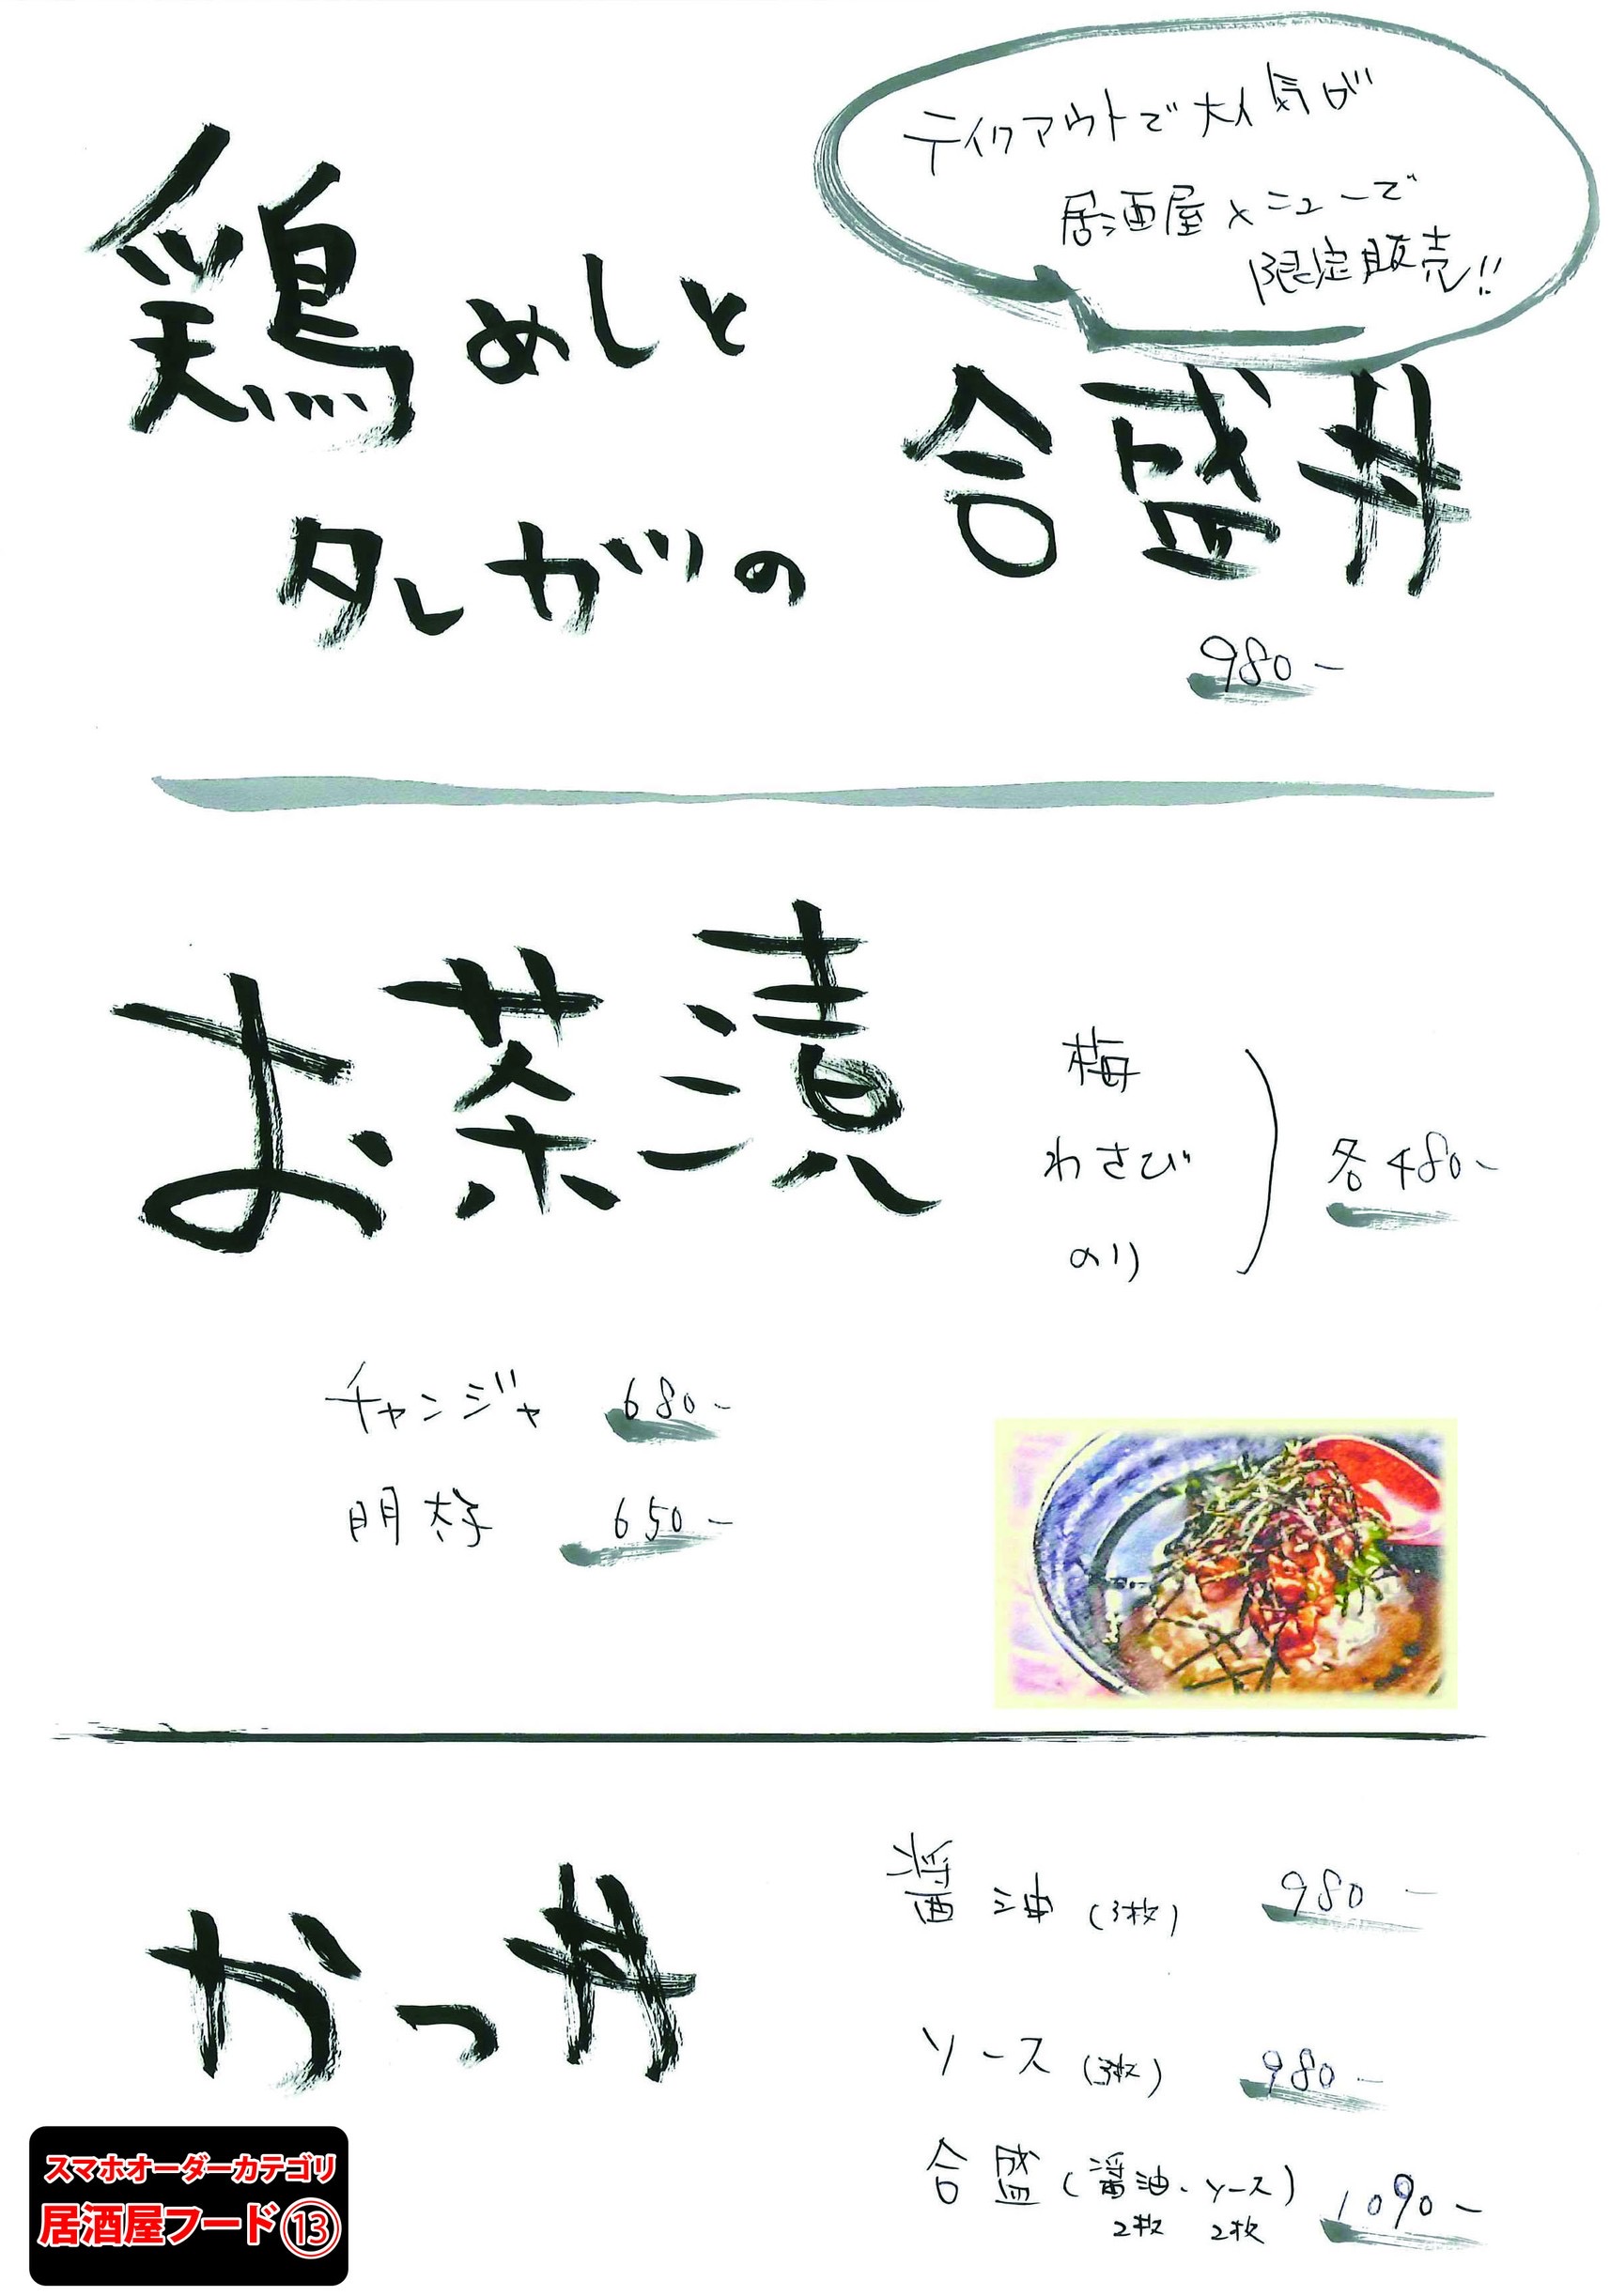 テイクアウトで大人気が
居酒屋メニューで
限定販売!!
鶏めしと
タレカツの
合盛丼
980-
お茶漬
梅
わさび
のり
各480-
チャンジャ 680-
明太子 650-
かつ丼
醤油(3枚) 980-
ソース(3枚) 980-
合盛(醤油、ソース) 1090-
2枚 2枚
スマホオーダーカテゴリ
居酒屋フード⑬